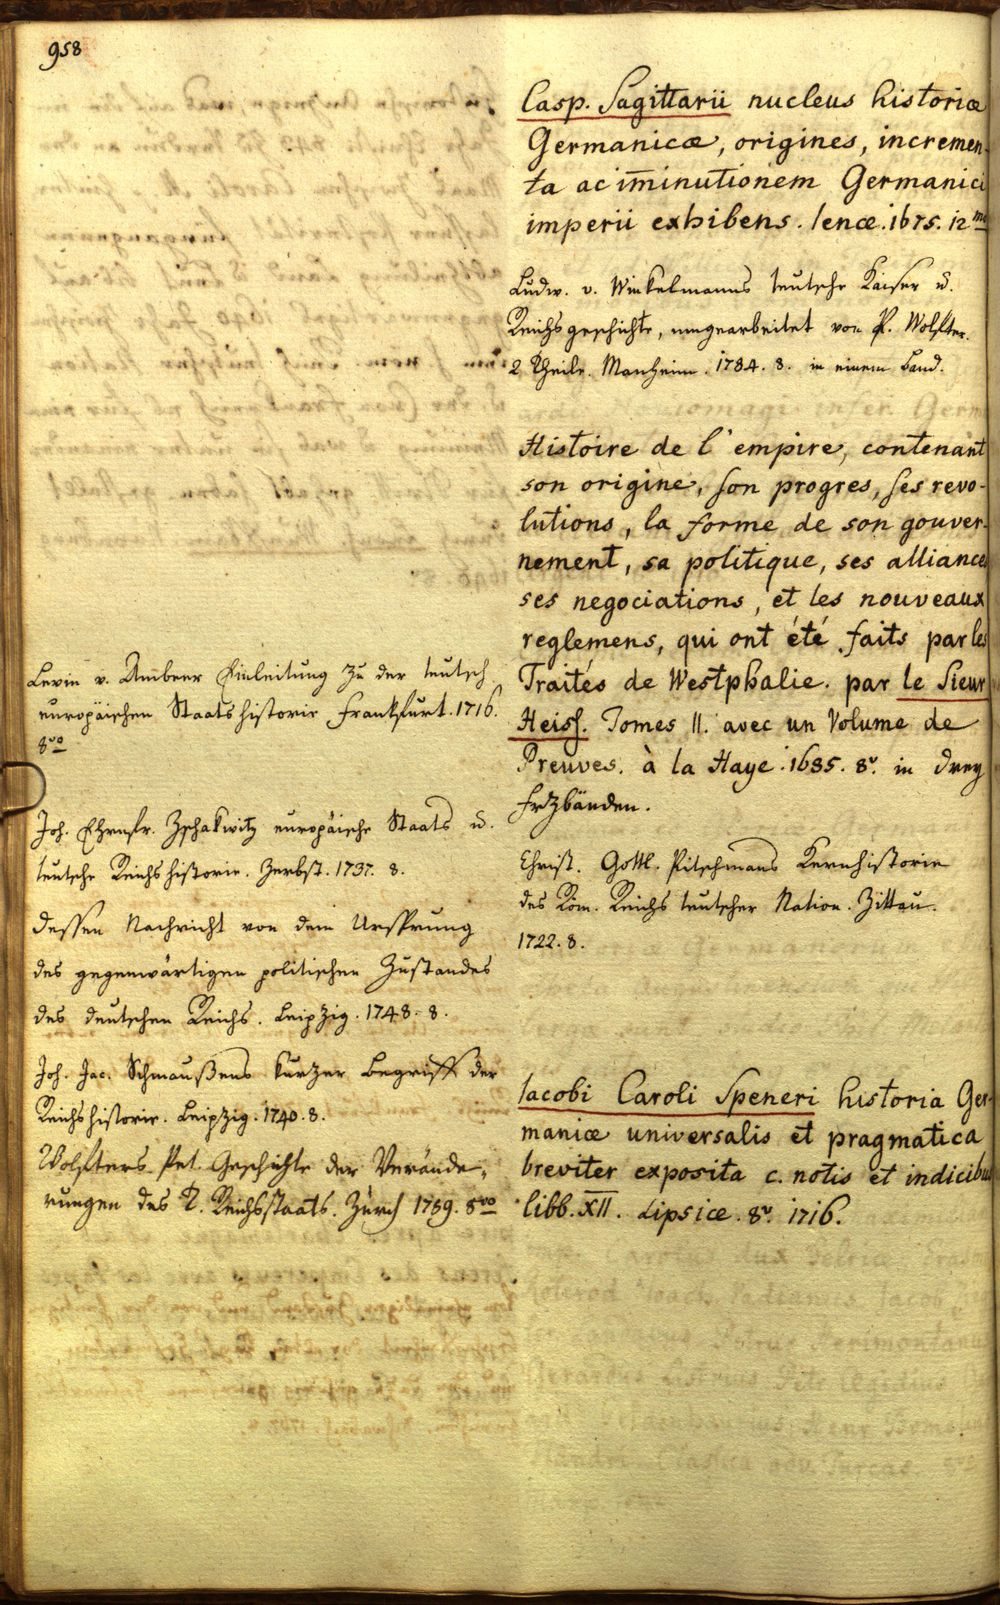 958
Casp. Sagittarii nucleus historiæ
Germanicæ, origines, incremen-
ta ac im̄inutionem Germanici
imperii exhibens. Ienæ. 1675. 12mo
Ludw. v. Winkelmanns teutsche Kaiser u.
Reichsgeschichte, umgearbeitet von P. Wolfter.
2 Theile. Manheim. 1784. 8. in einem Band.
Histoire de l'empire, contenant
son origine, son progres, ses revo-
lutions, la forme de son gouver-
nement, sa politique, ses alliances
ses negociations, et les nouveaux
reglemens, qui ont été faits par les
Traités de Westphalie. par le Sieur
Heiss. Tomes II. avec un Volume de
Preuves. à la Haye. 1685. 8v. in drey
frzbänden.
Christ. Gottl. Pitschmans Kernhistorie
des Röm. Reichs teutscher Nation. Zittau.
1722. 8.
Iacobi Caroli Speneri historia Ger-
maniæ universalis et pragmatica
breviter exposita c. notis et indicibus
libb. XII. Lipsiæ. 8v. 1716.
Levin v. Ambeer Einleitung zu der teutsch
europäischen Staatshistorie Frankfurt. 1716.
8vo
Joh. Ehrenfr. Zschakwitz europäische Staats u.
teutsche Reichshistorie. Zerbst. 1737. 8.
dessen Nachricht von dem Ursprung
des gegenwärtigen politischen Zustandes
des deutschen Reichs. Leipzig. 1748. 8.
Joh. Jac. Schmaußens kurzer Begriff der
Reichshistorie. Leipzig. 1740. 8.
Wolfters Pet. Geschichte der Verände-
rungen des T. Reichsstaats. Zürch 1789. 8vo